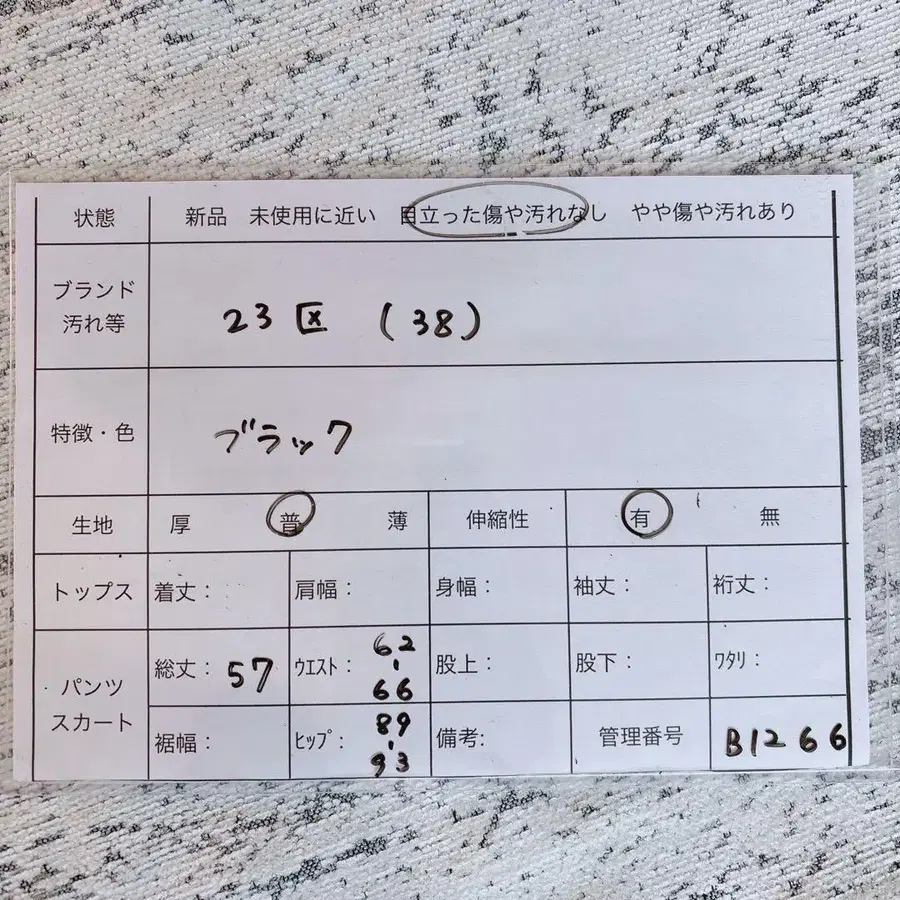 状態 新品 未使用に近い 目立った傷や汚れなし やや傷や汚れあり
ブランド
汚れ等
23区 (38)
特徴・色 ブラック
生地 厚 普 薄 伸縮性 有 無
トップス 着丈: 肩幅: 身幅: 袖丈: 裄丈:
パンツ
スカート
総丈: 57 ｳｴｽﾄ: 62-66 股上: 股下: ﾜﾀﾘ:
裾幅: ﾋｯﾌﾟ: 89-93 備考: 管理番号 B1266